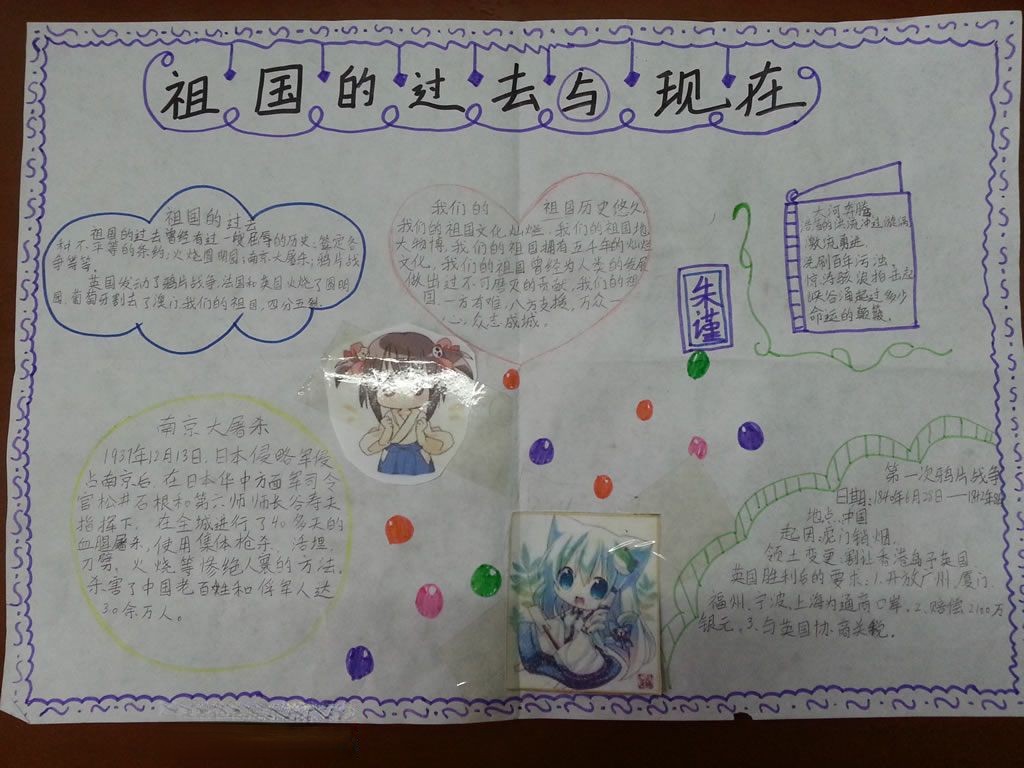 祖国的过去与现在
祖国的过去
祖国的过去曾经有过一段屈辱的历史:签定各
种不平等的条约;火烧圆明园;南京大屠杀;鸦片战
争等等。
英国发动了鸦片战争,法国和英国火烧了圆明
园,葡萄牙割去了澳门我们的祖国,四分五裂
我们的 祖国历史悠久,
我们的祖国文化灿烂,我们的祖国地
大物博,我们的祖国拥有五千年的灿烂
文化,我们的祖国曾经为人类的发展
做出过不可磨灭的贡献,我们的祖
国,一方有难,八方支援,万众一
心,众志成城。
朱谨
大河奔腾,
浩荡的洪流冲过漩涡
激流勇进,
洗刷百年污浊,
惊涛骇浪拍击起
峡谷涌起过多少
命运的颠簸。
南京大屠杀
1937年12月13日,日本侵略军侵
占南京后,在日本华中方面军司令
官松井石根和第六师师长谷寿夫
指挥下,在全城进行了40多天的
血腥屠杀,使用集体枪杀、活埋、
刀劈、火烧等惨绝人寰的方法,
杀害了中国老百姓和俘军人达
30余万人。
第一次鸦片战争
日期:1840年6月28日—1842年8
地点:中国
起因:虎门销烟
领土变更:割让香港岛予英国
英国胜利后的要求:1.开放广州、厦门、
福州、宁波、上海为通商口岸。2.赔偿2100万
银元。3.与英国协商关税。